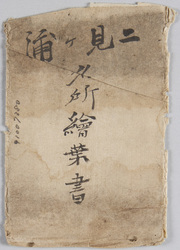 二見ヶ浦
名所繪葉書